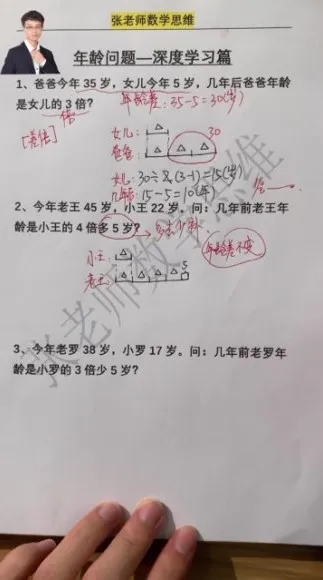 张老师数学思维
年龄问题—深度学习篇
1、爸爸今年 35 岁，女儿今年 5 岁，几年后爸爸年龄
是女儿的 3 倍？
年龄差：35-5=30(岁)
倍
[差倍]
女儿：
30
爸爸：
女：30÷(3-1)=15(岁)
几年后：15-5=10(年)
2、今年老王 45 岁，小王 22 岁。问：几年前老王年
龄是小王的 4 倍多 5 岁？
年龄差不变
小王：
老王：
5
3、今年老罗 38 岁，小罗 17 岁。问：几年前老罗年
龄是小罗的 3 倍少 5 岁？
张老师数学思维